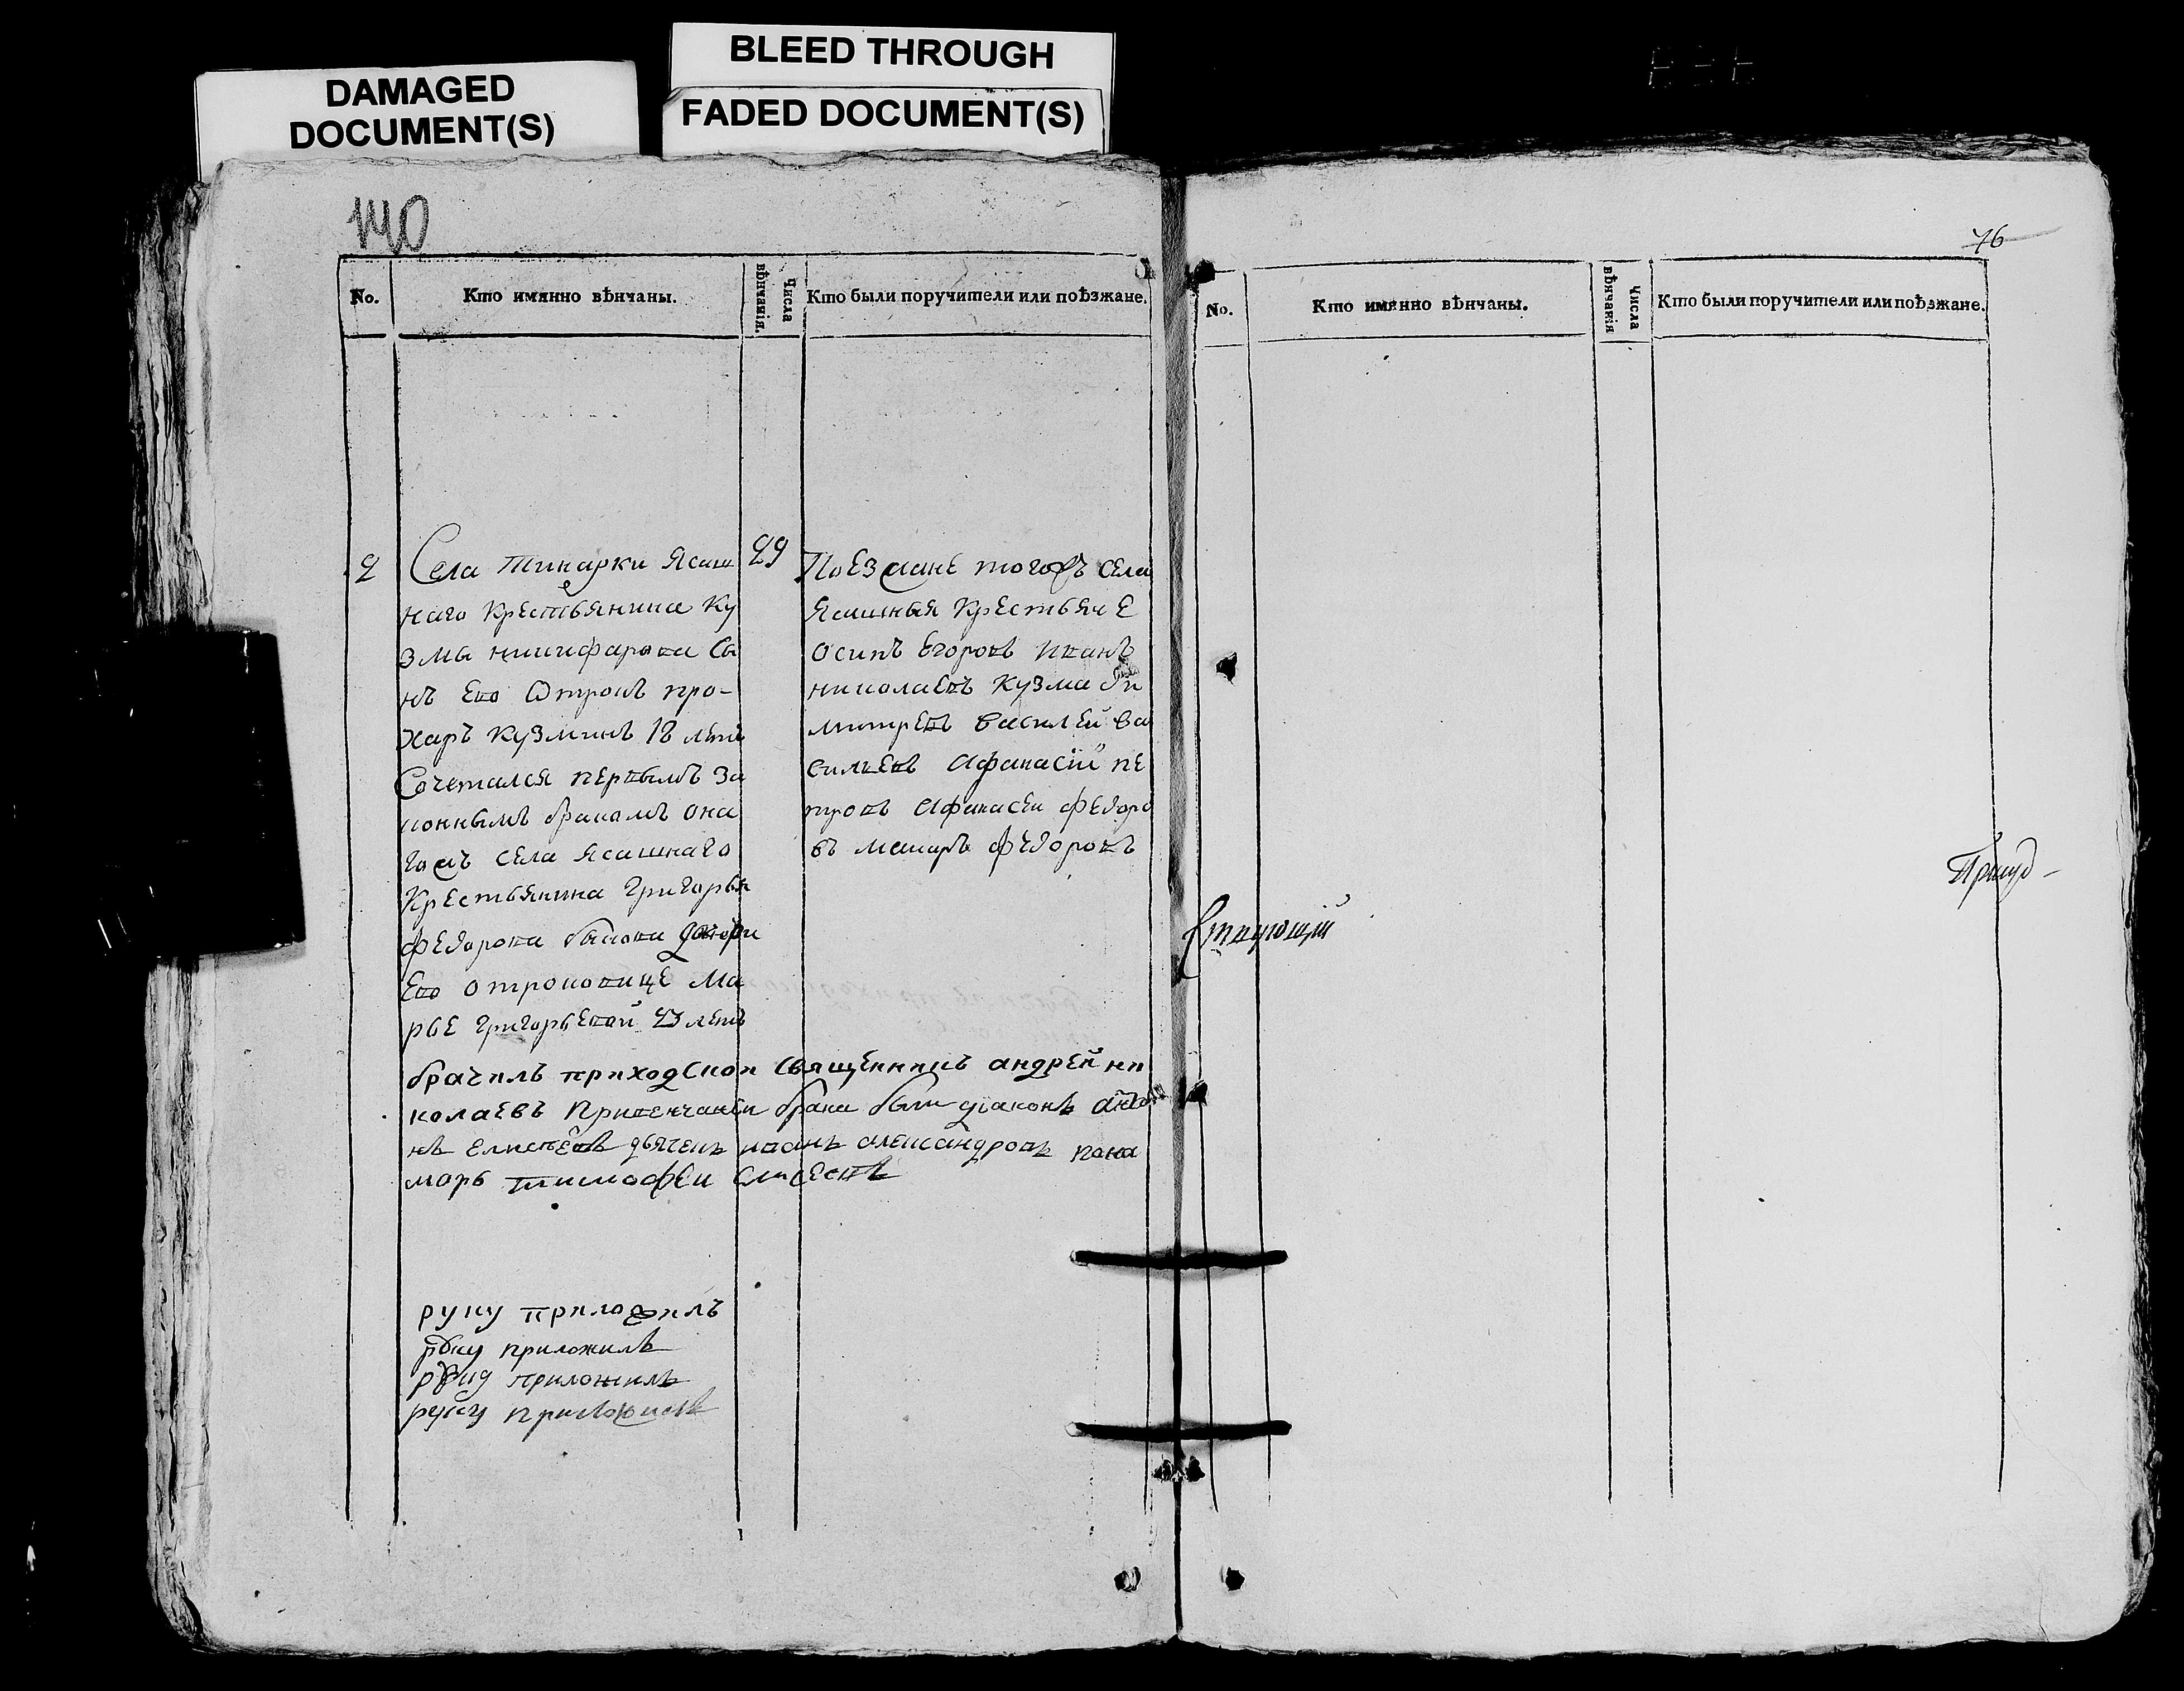 DAMAGED
DOCUMENT(S)
BLEED THROUGH
FADED DOCUMENT(S)
140
No.
Кто имянно вѣнчаны.
Числа
вѣнчанія.
Кто были поручители или поѣзжане.
2
Села тинарки Ясаш
наго крестьянина Ку
змы никифарова Сы
нъ Ево Отрокъ про-
харъ Кузминъ 18 летъ
Сочетался первымъ за
коннымъ бракамъ она
гожъ села Ясашнаго
Крестьянина Григорья
Федорова дочери
Ево отроковице Ма
рье Григорьевой 23 летъ
29
Поезжане тогожъ села
Ясашныя Крестьяне
Осипъ Егоровъ Иванъ
николаевъ Кузма дми
митревъ Василей ва
сильевъ Афанасій пе
тровъ Афанасеи Федоро
въ макаръ Федоровъ
брачилъ приходскои Священникъ андрей ни
колаевъ При венчаніи брака были діаконъ
дьячекъ иванъ александровъ поно
марь тимофеи
руку приложилъ
руку приложилъ
руку приложилъ
руку приложилъ
76
No.
Кто имянно вѣнчаны.
Числа
вѣнчанія
Кто были поручители или поѣзжане.
Присуд-
ствующій